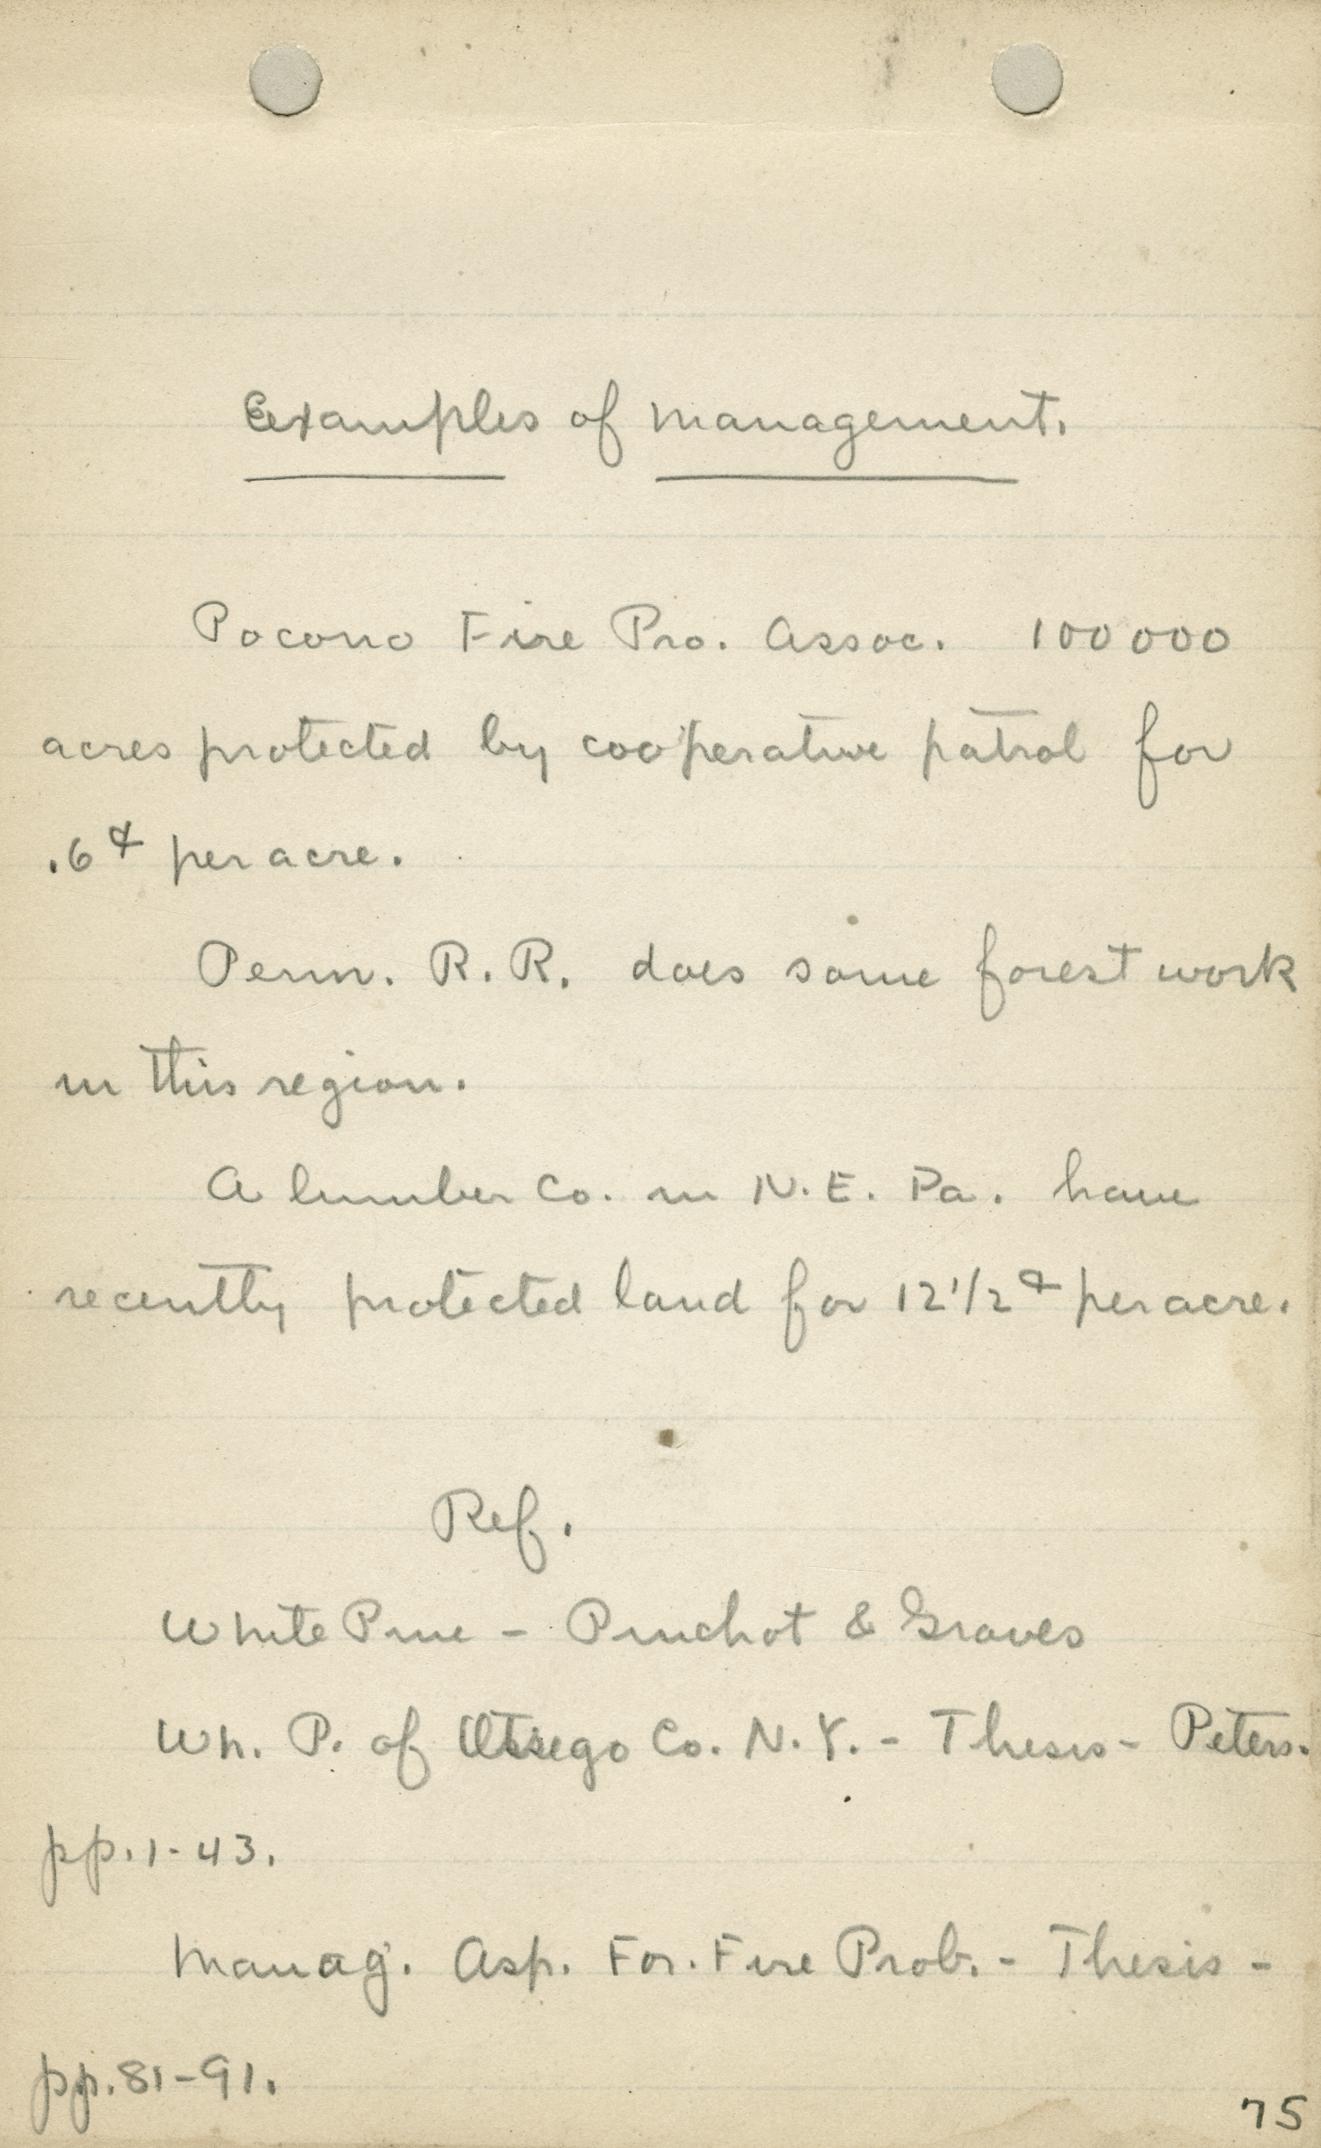 Examples of Management.
Pocono Fire Pro. Assoc. 100000
acres protected by cooperative patrol for
.6¢ per acre.
Penn. R.R. does some forest work
in this region.
A lumber Co. in N.E. Pa. have
recently protected land for 12 1/2¢ per acre.
Ref.
White Pine - Pinchot & Graves
Wh. P. of Otsego Co. N.Y. - Thesis - Peters.
pp. 1-43.
Manag. Asp. For. Fire Prob. - Thesis -
pp. 81-91.
75